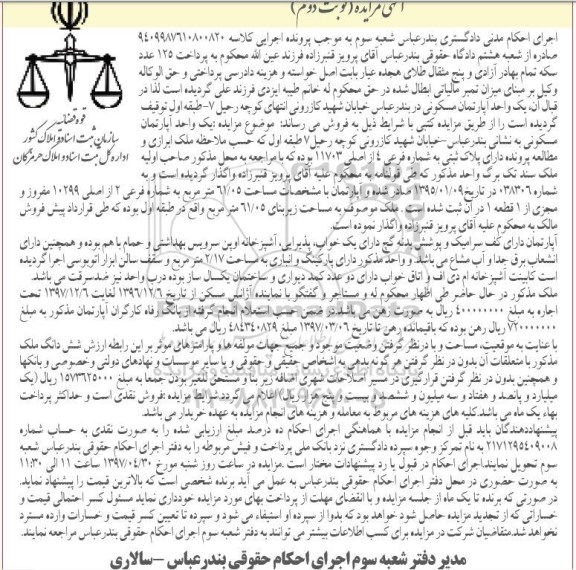 آگهی مزایده (نوبت دوم)
قوه قضائیه
سازمان ثبت اسناد و املاک کشور
اداره کل ثبت اسناد و املاک هرمزگان
اجرای احکام مدنی دادگستری بندرعباس شعبه سوم به موجب پرونده اجرایی کلاسه ۹۴۰۹۹۸۷۶۱۰۸۰۰۸۲۰
صادره از شعبه هشتم دادگاه حقوقی بندرعباس آقای پرویز قنبرزاده فرزند عین الله محکوم به پرداخت ۱۲۵ عدد
سکه تمام بهار آزادی و پنج مثقال طلای هجده عیار بابت اصل خواسته و هزینه دادرسی پرداختی و حق الوکاله
وکیل بر مبنای میزان تمبر مالیاتی ابطال شده در حق محکوم له خانم طیبه ایزدی فرزند علی گردیده است لذا در
قبال آن، یک واحد آپارتمان مسکونی در بندرعباس خیابان شهید کازرونی انتهای کوچه رحیل ۷-طبقه اول توقیف
گردیده است را از طریق مزایده کتبی با شرایط ذیل به فروش می رساند: موضوع مزایده :یک واحد آپارتمان
مسکونی به نشانی بندرعباس-خیابان شهید کازرونی کوچه رحیل۷ طبقه اول که حسب ملاحظه ملک ابرازی و
مطالعه پرونده دارای پلاک ثبتی به شماره فرعی ۴ از اصلی ۱۱۷۰۳ بوده که با مراجعه به محل مذکور صاحب اولیه
ملک سند تک برگ واحد مذکور که طی قولنامه به محکوم علیه آقای پرویز قنبرزاده واگذار گردیده است و به
شماره ۰۳۸۳۰۶ در تاریخ ۱۳۹۵/۰۱/۰۹ صادر شده و آپارتمان با مشخصات مساحت ۶۱/۰۵ متر مربع به شماره فرعی ۲ از اصلی ۱۰۲۹۹ مفروز و
مجزی از ۱ قطعه ۱ در آن ثبت شده است. ملک موصوف به مساحت زیربنای ۶۱/۰۵ متر مربع واقع در طبقه اول بوده که طی قرارداد پیش فروش
مالک به محکوم علیه آقای پرویز قنبرزاده واگذار نموده است.
آپارتمان دارای کف سرامیک و پوشش بدنه گچ دارای یک خواب، پذیرایی، آشپزخانه اوپن سرویس بهداشتی و حمام با هم بوده و همچنین دارای
انشعاب برق جدا و آب مشاع می باشد. و واحد مذکور دارای پارکینگ و انباری به مساحت ۲/۱۷ متر مربع و سقف سالن ابزار اتوبوسی اجرا گردیده
است کابینت آشپزخانه ام دی اف و اتاق خواب دارای دو عدد کمد دیواری و ساختمان یکسال ساز بوده درب واحد نیز ضدسرقت می باشد.
ملک مذکور در حال حاضر طی اظهار محکوم له و مستاجر و گفتگو با نماینده آژانس مسکن از تاریخ ۱۳۹۶/۱۲/۶ لغایت ۱۳۹۷/۱۲/۶ تحت
اجاره به مبلغ ۴۰۰۰۰۰۰۰ ریال به صورت رهن می باشد در ضمن حسب استعلام انجام گرفته از بانک رفاه کارگران آپارتمان مذکور به مبلغ
۷۲۰۰۰۰۰۰۰ ریال رهن بوده که باقیمانده رهن تا تاریخ ۱۳۹۷/۰۳/۰۶ مبلغ ۴۸۴۳۴۰۸۲۹ ریال می باشد.
با عنایت به موقعیت، مساحت و با درنظر گرفتن وضعیت موجود و جمیع جهات مولفه ها و پارامترهای موثر بر این رابطه ارزش شش دانگ ملک
مذکور با متعلقات آن بدون در نظر گرفتن هر گونه بدهی به اشخاص حقیقی و حقوقی و یا سایر موسسات و نهادهای دولتی و خصوصی و بانکها
و همچنین بدون در نظر گرفتن قرارگیری در مسیر اصلاحات شهری اضافه زیر بنا و مستحق للغیر بودن جمعا به مبلغ ۱۵۷۳۶۲۵۰۰۰ ریال (یک
میلیارد و پانصد و هفتاد و سه میلیون و ششصد و بیست و پنج هزار ریال) گردد.شرایط مزایده :فروش نقدی است و حداکثر پرداخت
بهاء یک ماه می باشد.کلیه های هزینه های مربوط به معامله و هزینه های انجام مزایده به عهده خریدار می باشد.
پیشنهاددهندگان باید قبل از انجام مزایده با هماهنگی اجرای احکام ده درصد مبلغ ارزیابی شده را به صورت نقدی به حساب شماره
۲۱۷۱۲۹۵۴۰۹۰۰۸ به نام تمرکز وجوه سپرده دادگستری نزد بانک ملی پرداخت و فیش مربوطه را به دفتر اجرای احکام حقوقی بندرعباس شعبه
سوم تحویل نمایند.اجرای احکام در قبول یا رد پیشنهادات مختار است .مزایده در ساعت روز شنبه مورخ ۱۳۹۷/۰۴/۳۰ ساعت ۱۱ الی ۱۱:۳۰
به صورت حضوری در محل دفتر اجرای احکام حقوقی بندرعباس به عمل می آید برنده شخصی است که بالاترین قیمت را پیشنهاد نماید.
در صورتی که برنده تا یک ماه از جلسه مزایده و با انقضای مهلت از پرداخت بهای مورد مزایده خودداری نماید مسئول کسر احتمالی قیمت و
خساراتی که از تجدید مزایده حاصل شود خواهد بود که بدوا از سپرده او استیفاء می شود و سپرده تا تعیین کسر قیمت و خسارات وارده مسترد
نخواهد شد.متقاضیان شرکت در مزایده برای کسب اطلاعات بیشتر می توانند به دفتر شعبه سوم اجرای احکام حقوقی بندرعباس مراجعه نمایند.
مدیر دفتر شعبه سوم اجرای احکام حقوقی بندرعباس -سالاری